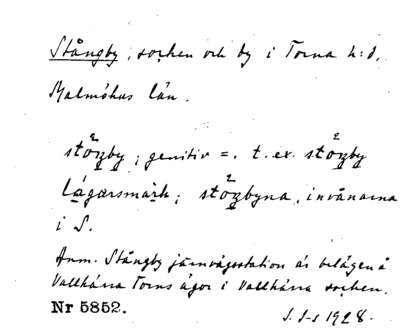 Stångby, socken och by i Torna h:d,
Malmöhus län.
stöŋby; genitiv =. t. ex. stöŋby
lágarsmark; stöŋbyna, invånarna
i S.
Anm. Stångby järnvägsstation är belägen å
Vallkärra Torns ägor i Vallkärra socken.
Nr 5852.
1928.